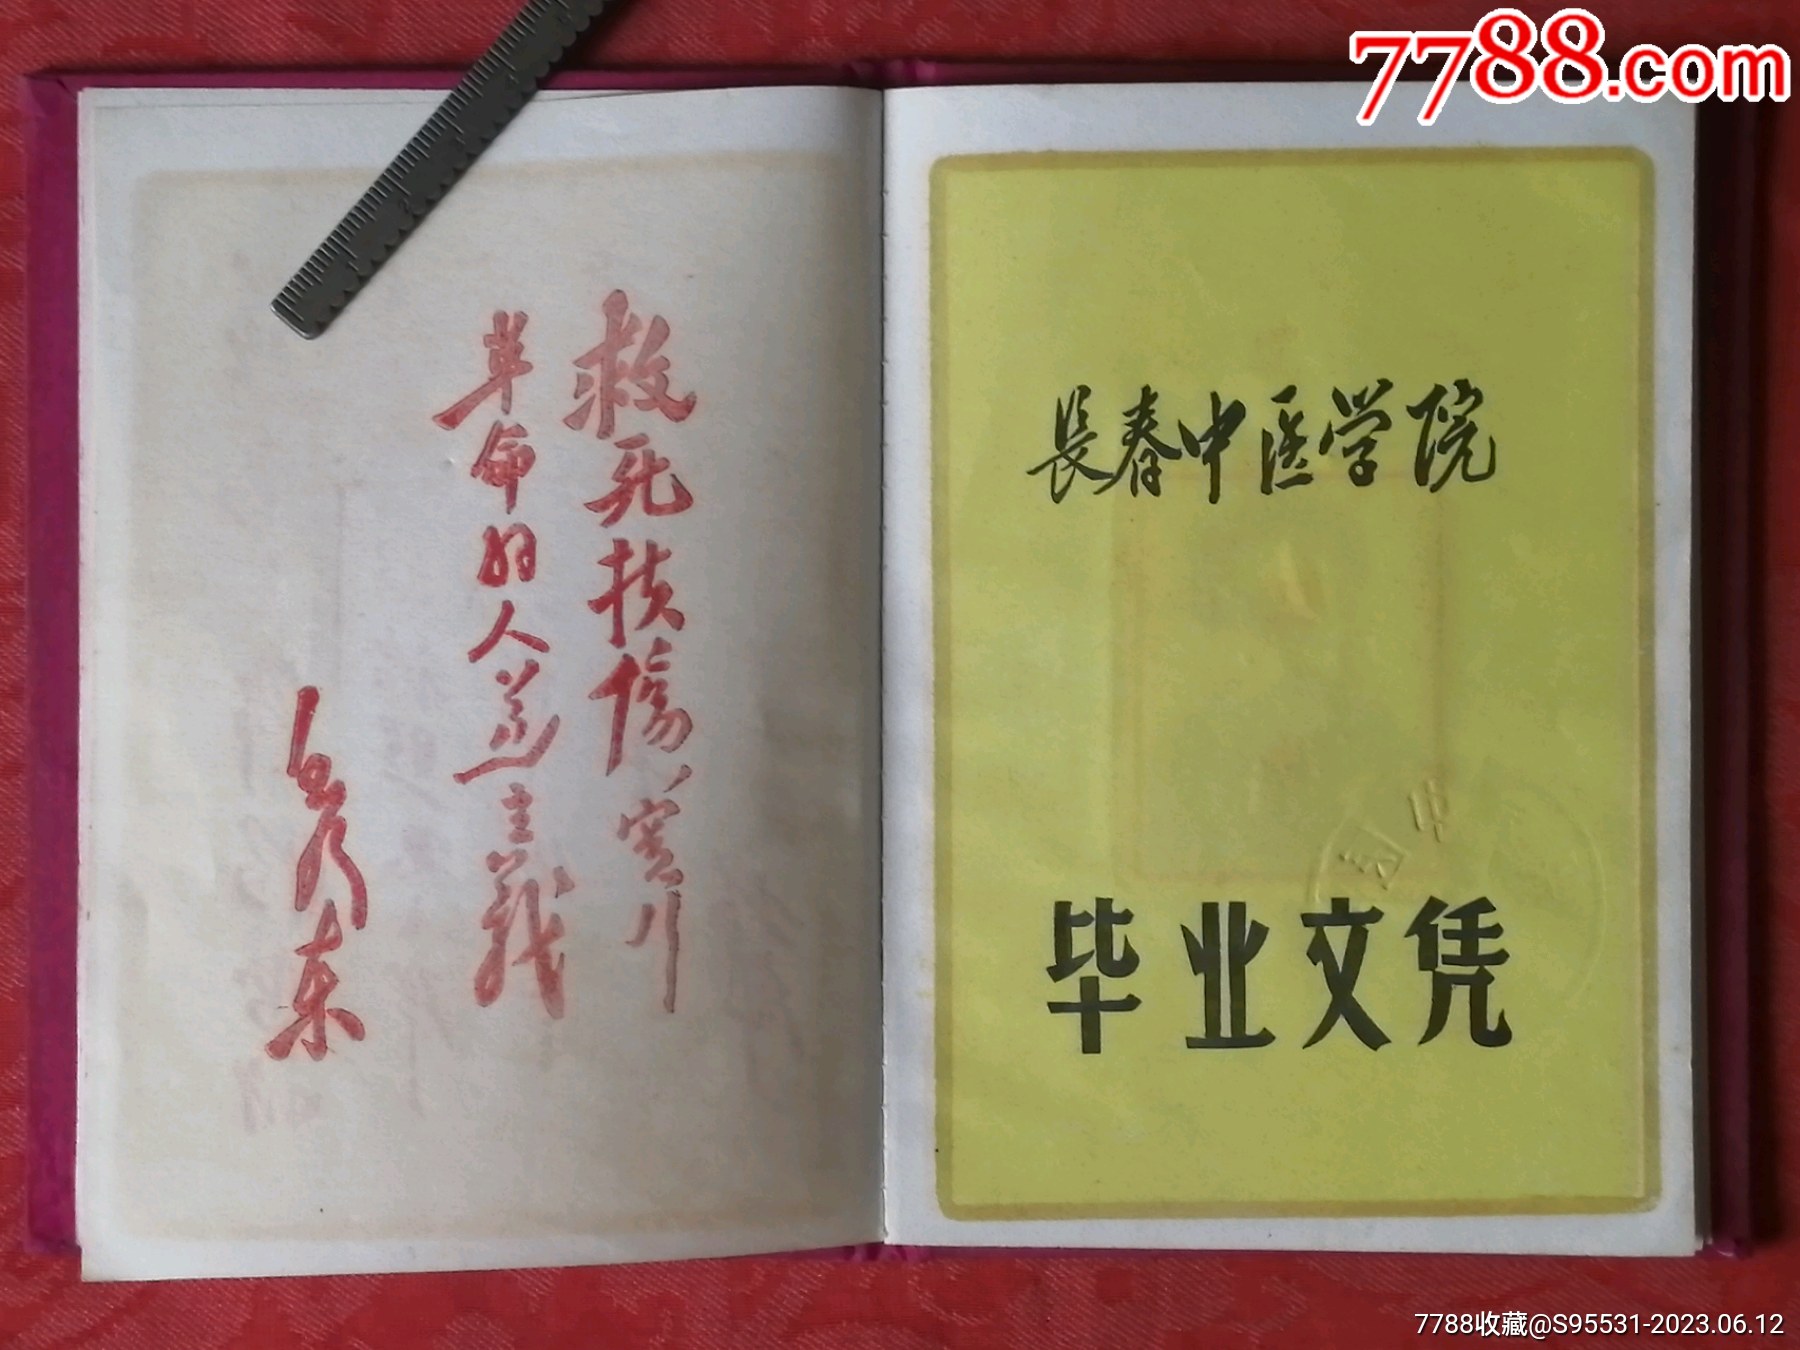 7788.com
救死扶傷实行
革命的人道主義
毛泽东
長春中医学院
中国
毕业文凭
7788收藏@S95531-2023.06.12